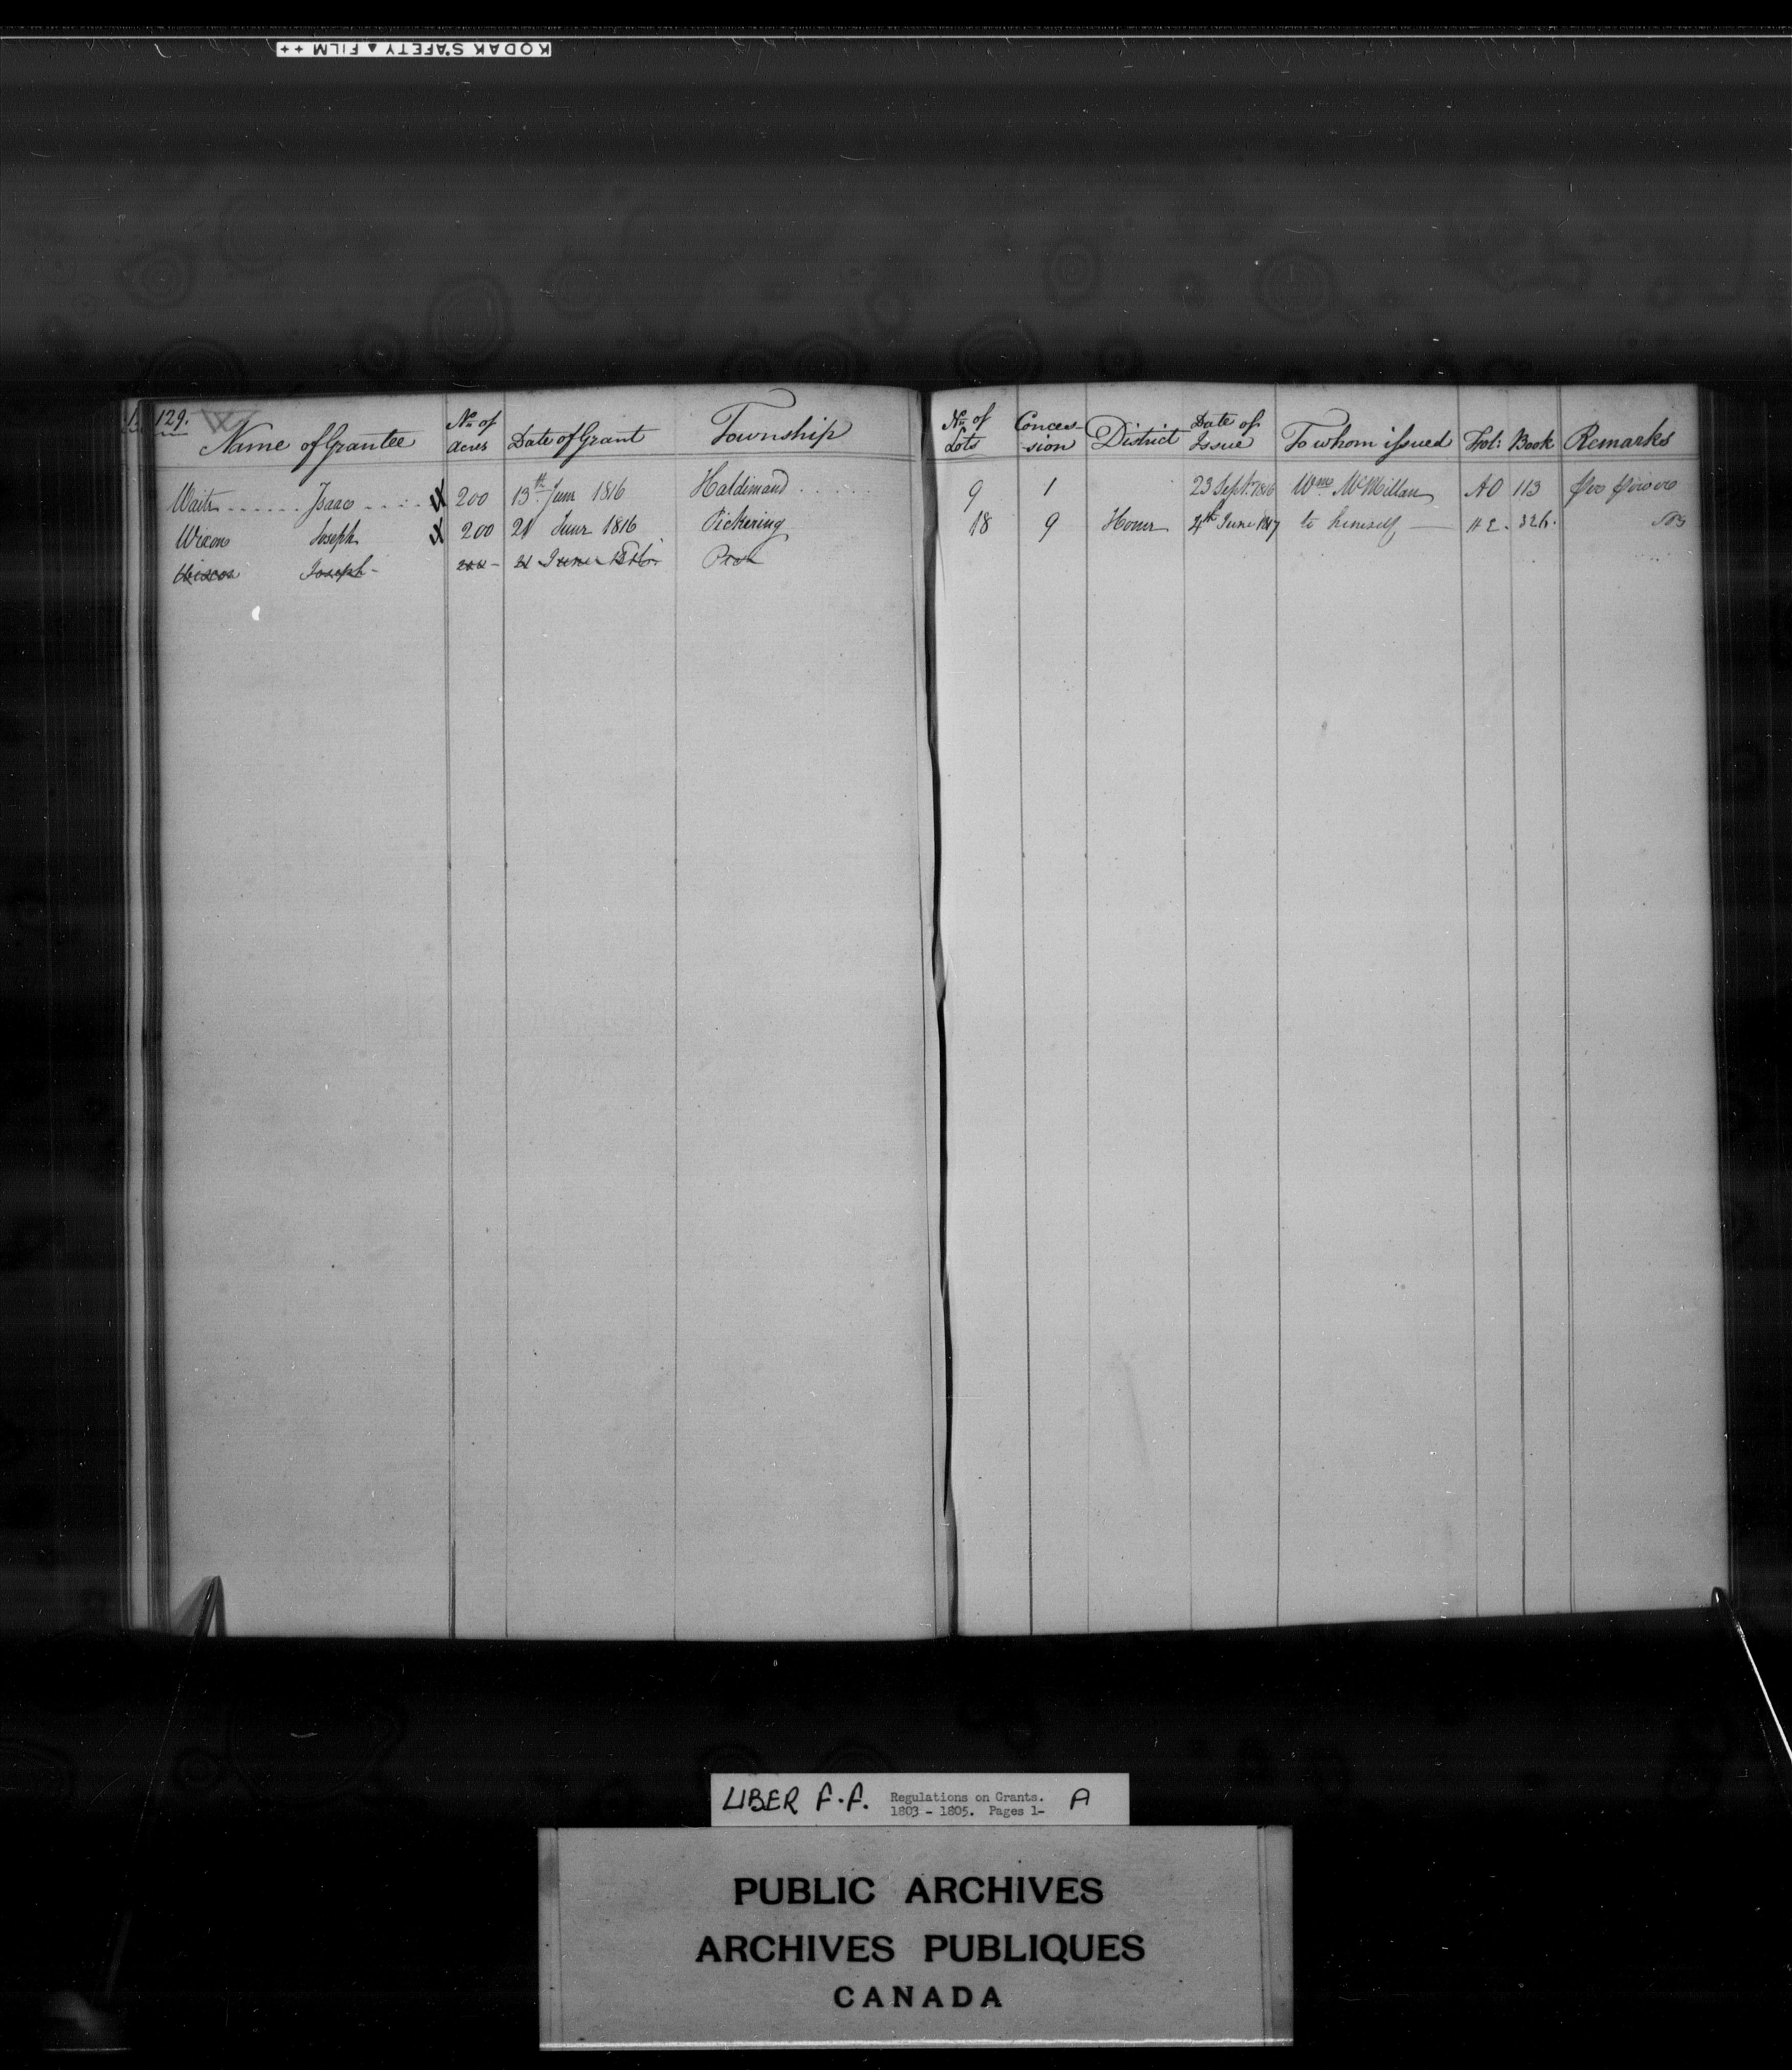 KODAK SAFETY ▲ FILM ++
129. W
Name of Grantee | No. of acres | Date of Grant | Township | No. of Lots | Conces -sion | District | Date of Issue | To whom issued | Fol: | Book | Remarks
Waite Isaac 200 13th June 1816 Haldimand 9 1 23 Sept. 1816 Wm McMillan AO 113
Wixon Joseph 200 21 June 1816 Pickering 18 9 Home 4th June 1817 to himself HE. 326.
Joseph 200 21 June 1816. Pick
LIBER F.F. Regulations on Grants. A
1803 - 1805. Pages 1-
PUBLIC ARCHIVES
ARCHIVES PUBLIQUES
CANADA